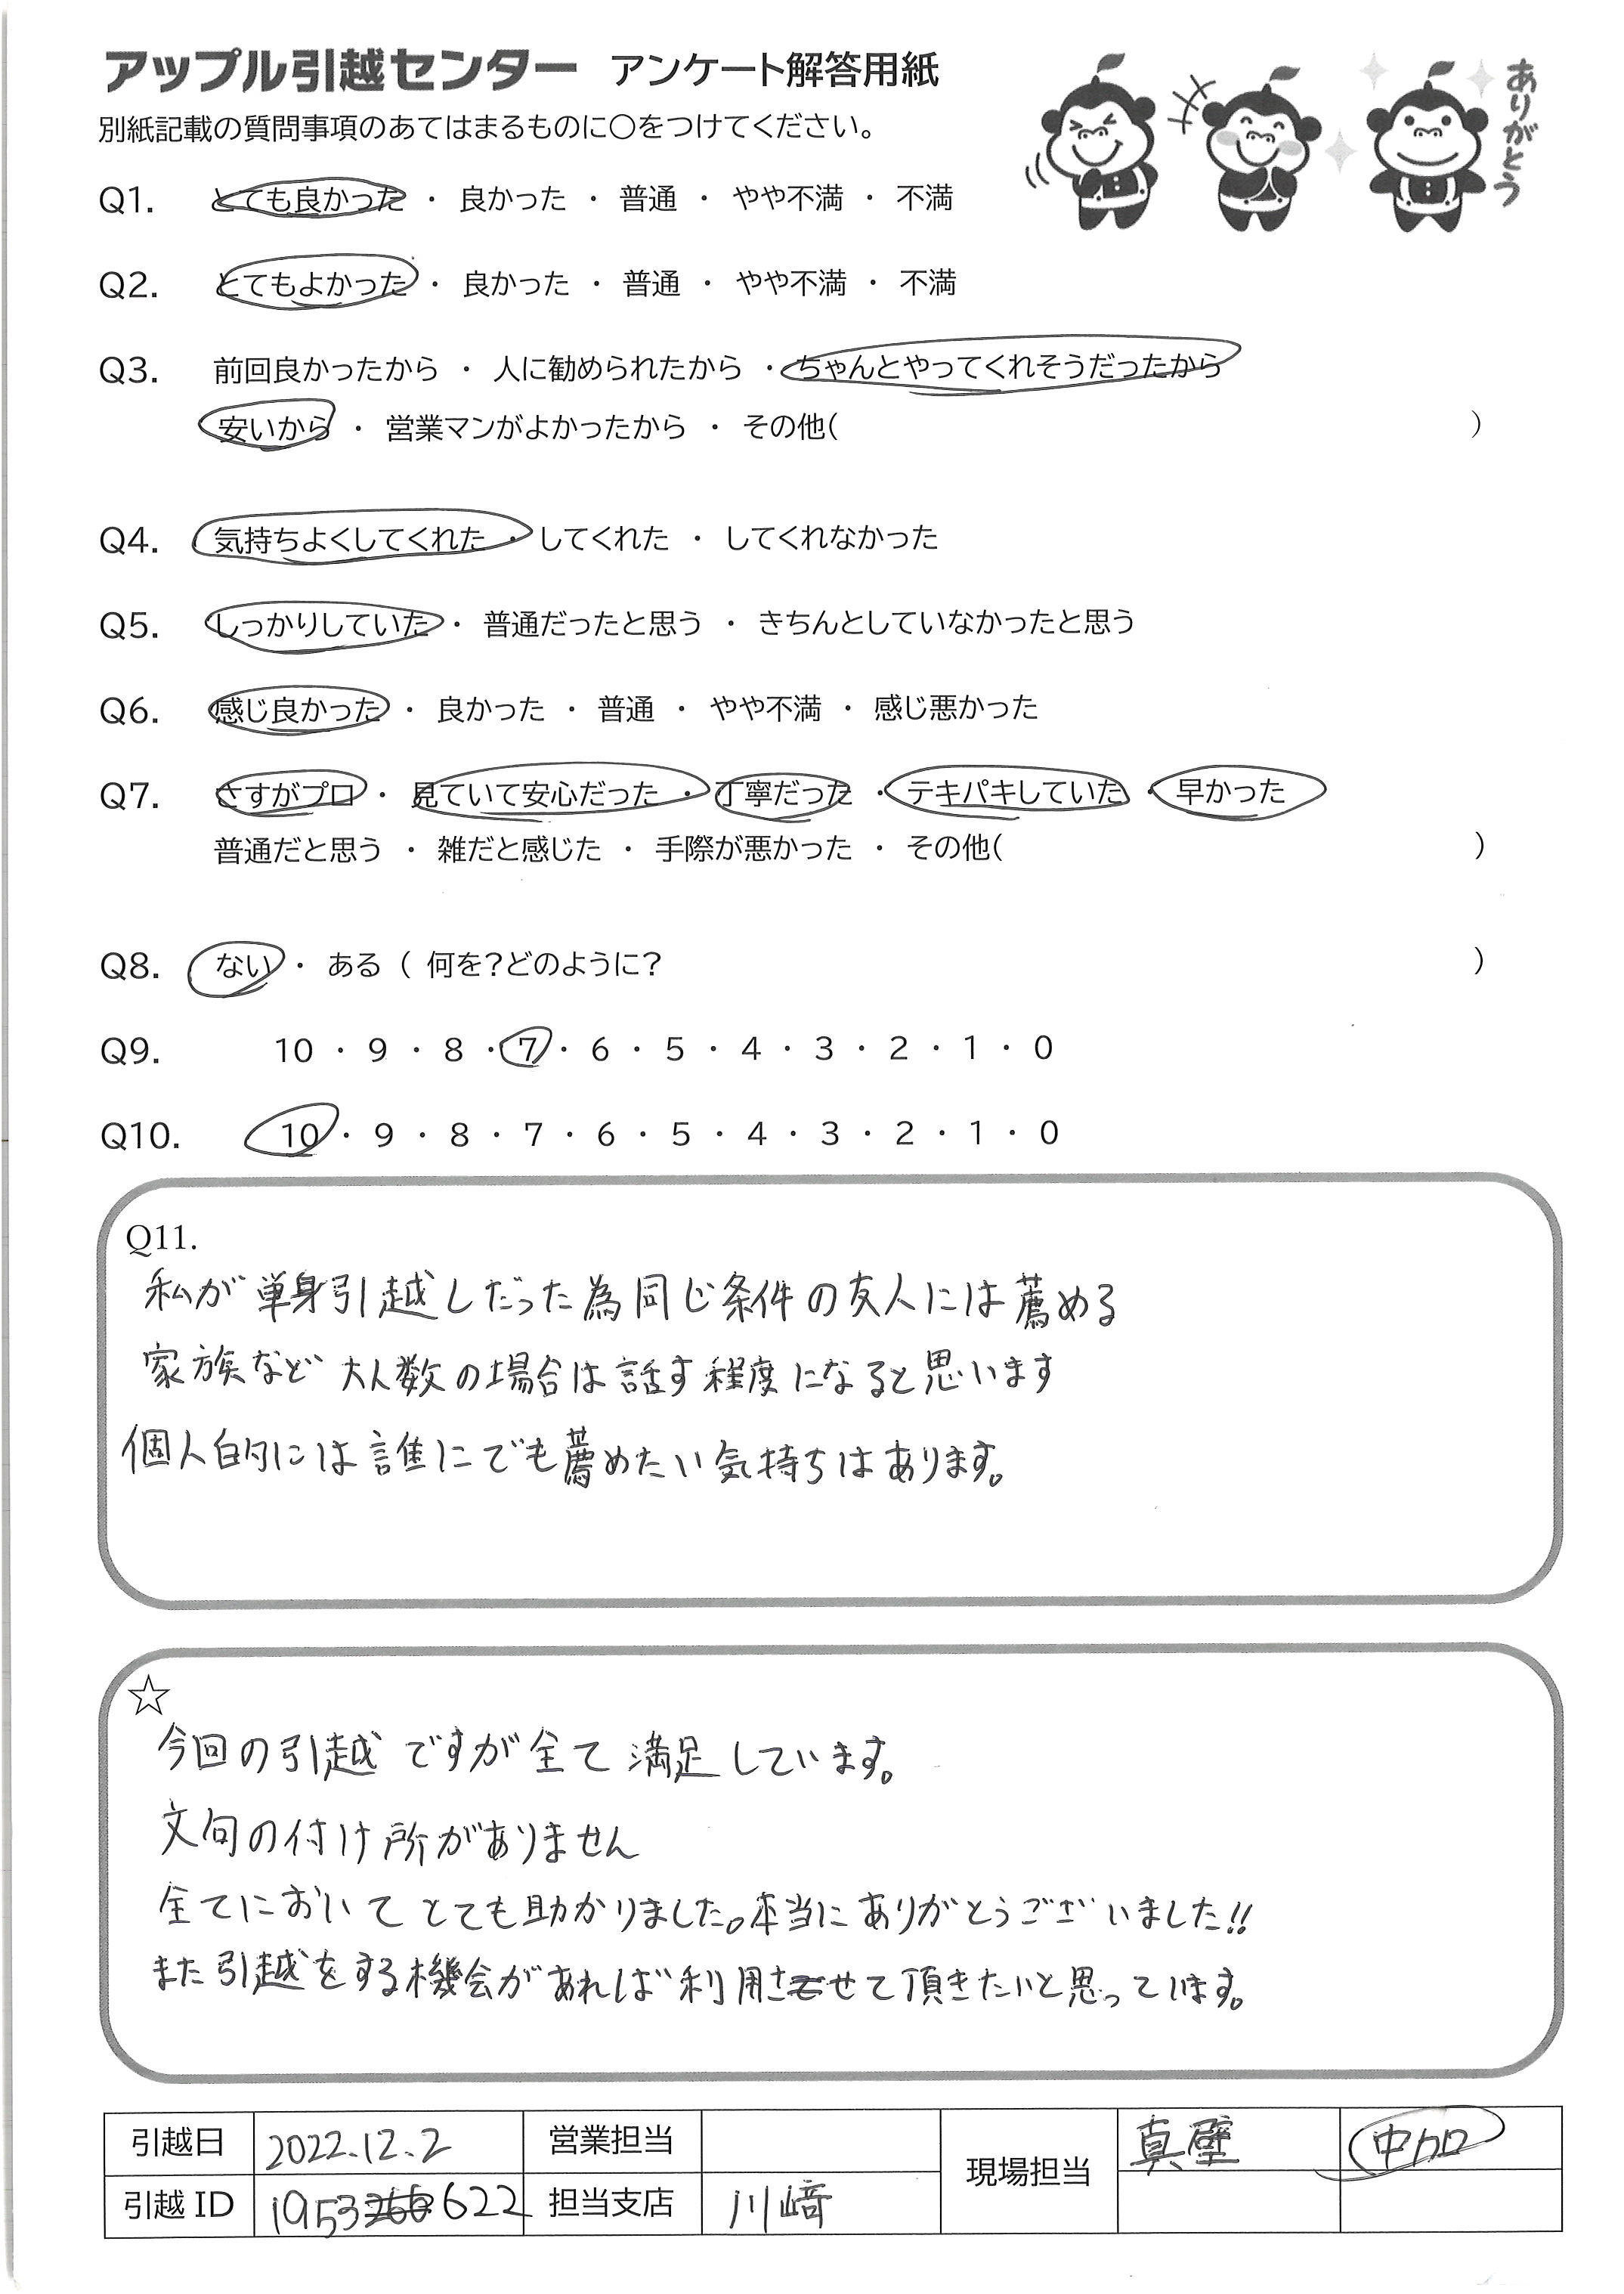 アップル引越センター アンケート解答用紙
ありがとう
別紙記載の質問事項のあてはまるものに〇をつけてください。
Q1. とても良かった ・ 良かった ・ 普通 ・ やや不満 ・ 不満
Q2. とてもよかった ・ 良かった ・ 普通 ・ やや不満 ・ 不満
Q3. 前回良かったから ・ 人に勧められたから ・ ちゃんとやってくれそうだったから
安いから ・ 営業マンがよかったから ・ その他( )
Q4. 気持ちよくしてくれた ・ してくれた ・ してくれなかった
Q5. しっかりしていた ・ 普通だったと思う ・ きちんとしていなかったと思う
Q6. 感じ良かった ・ 良かった ・ 普通 ・ やや不満 ・ 感じ悪かった
Q7. さすがプロ ・ 見ていて安心だった ・ 丁寧だった ・ テキパキしていた ・ 早かった
普通だと思う ・ 雑だと感じた ・ 手際が悪かった ・ その他( )
Q8. ない ・ ある ( 何を?どのように? )
Q9. 10 ・ 9 ・ 8 ・ 7 ・ 6 ・ 5 ・ 4 ・ 3 ・ 2 ・ 1 ・ 0
Q10. 10 ・ 9 ・ 8 ・ 7 ・ 6 ・ 5 ・ 4 ・ 3 ・ 2 ・ 1 ・ 0
Q11.
私が単身引越しだった為同じ条件の友人には薦める
家族など大人数の場合は話す程度になると思います
個人的には誰にでも薦めたい気持ちはあります。
☆
今回の引越ですが全て満足しています。
文句の付け所がありません
全てにおいてとても助かりました。本当にありがとうございました!!
また引越をする機会があれば利用させて頂きたいと思っています。
引越日 2022.12.2 営業担当 現場担当 真壁 中加
引越ID 1953622 担当支店 川崎